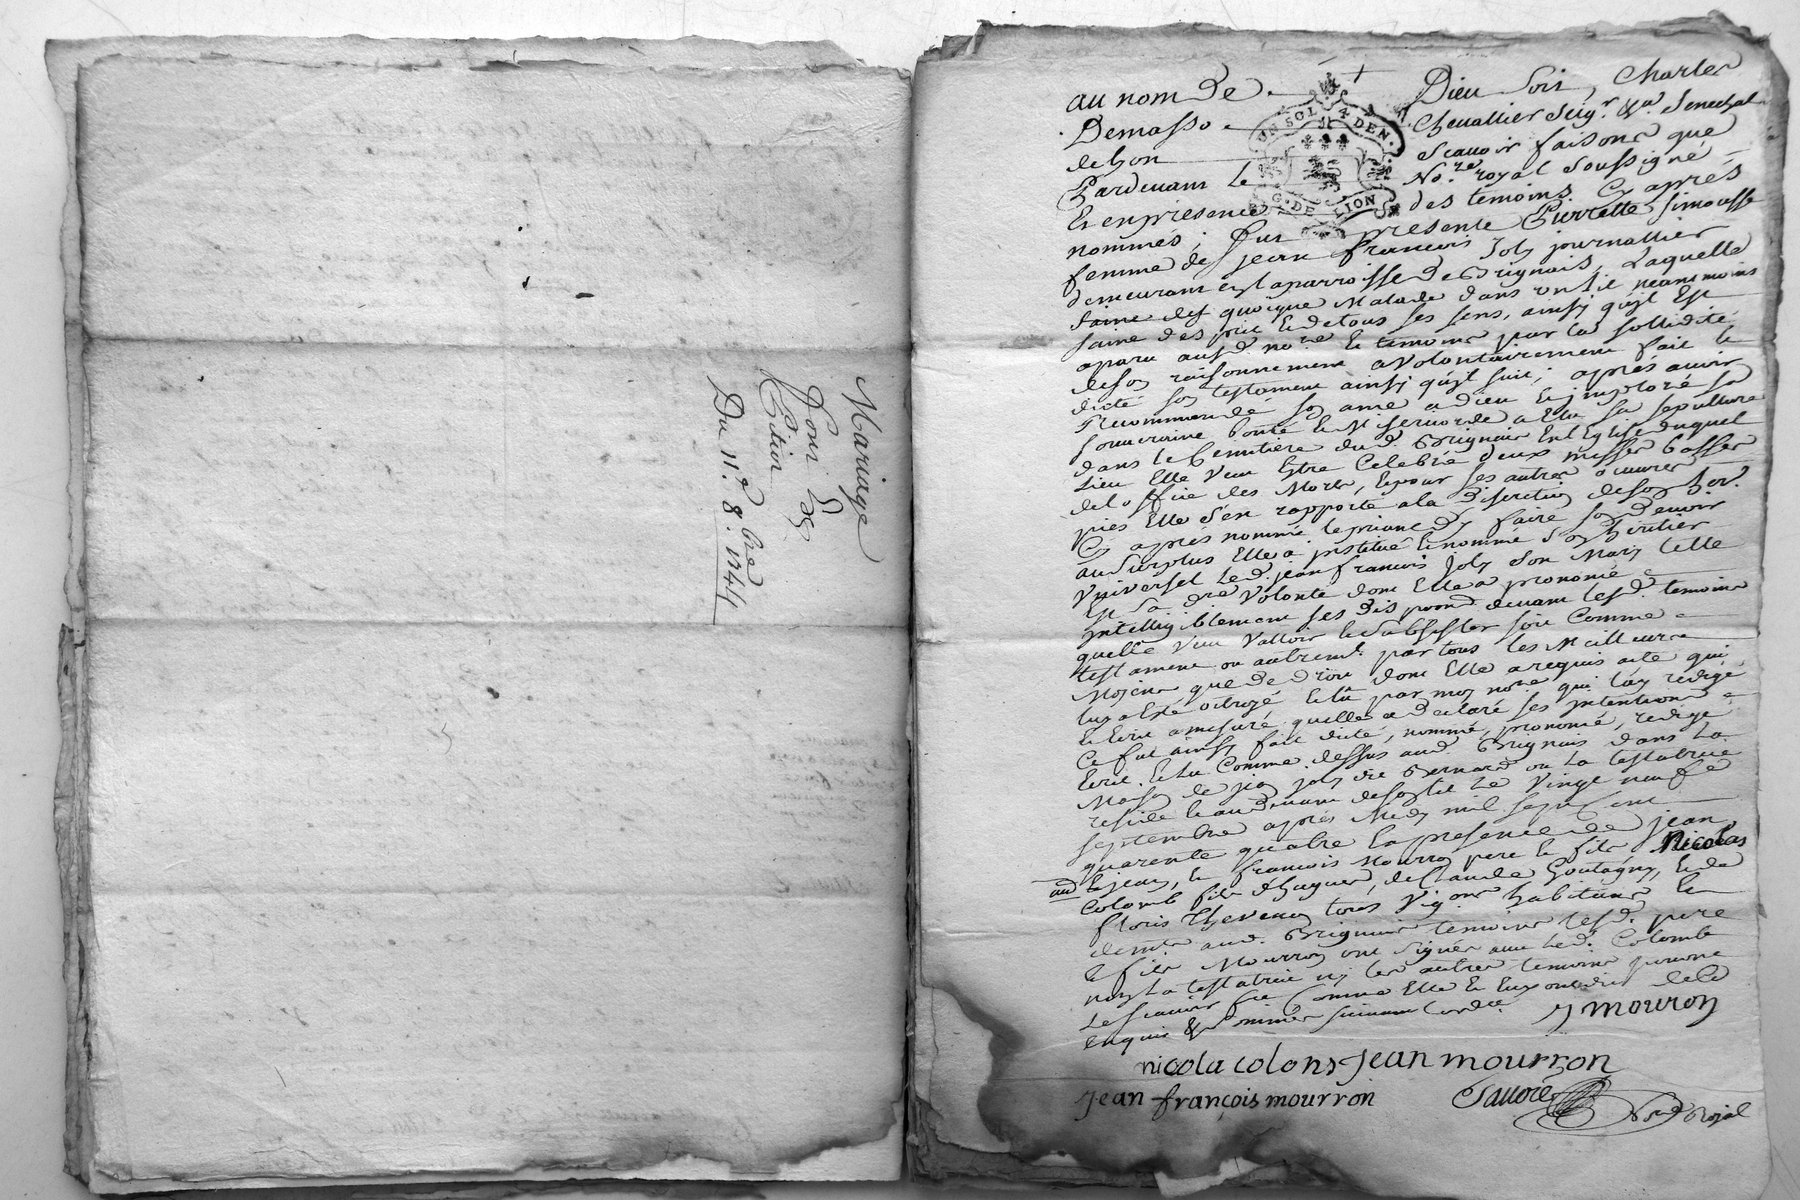 Mariage
Du 11e 8bre 1744
au nom De Dieu Soit, Charles
Demasso Chevallier Seigr. &a. Senechal
delyon Scavoir faisons que
Pardevant Le No.re royal Soussigné
Et enpresence des temoins Cy après
nommés; fut presente Pierrette Simousse
femme de jean françois Joly journallier
demeurant enlaparroisse de Brignais, Laquelle
quoique Malade dans un lit neantmoins
saine desprit Et detous ses sens, ainsy quil Est
aparu ausd. no.re Et temoins par la sollidité
deson raisonnement a volontairement fait Et
dicté son testament ainsy quil suit; après avoir
recommandé son ame a dieu Et imploré sa
souveraine bonté Et Misericorde a Elu sa sepulture
dans le Cemitière dud. Brignais En L'Eglise duquel
Lieu Elle veut Estre Celebré deux messes basses
del'office des Morts, Et pour ses autres oeuvres
pies Elle s'en rapporte ala discretion deson her.
Cy après nommé, le priant dy faire son devoir
au Surplus Elle a institué Et nommé son heritier
Universel Led. jean francois Joly son Mary telle
Est sa d.re volonté dont Elle a prononcé
intelligiblement ses dispoon. devant lesd. temoins
quelle veut valloir Et subsister soit Comme
testament ou autremt. par tous les Meilleurs
Moyens que de droit dont Elle a requis acte qui
luy a Esté octroyé Et lû par moy no.re qui l'ay redigé
Et Ecrit amesure quelle a declaré ses intentions
Ce fut ainsy fait dicté, nommé, prononcé, redigé
Ecrit Et lu Comme dessus aud. Brignais dans La
Maison de joly dit Bernard ou La testatrice
reside Et audevant deson lit Le vingt neuf
septembre après Midy mil sept Cent
quarente quatre En presence de jean
Et jean, Et françois Mourron pere Et fils Nicolas
Colomb fils d'hugues, de Claude Goutagny, Et de
floris Thevenon tous vig.ons habitans
aud. Brignais temoins lesd. pere
Et fils Mourron ont signés avec Led. Colomb
non La testatrice ny les autres temoins pour ne
Le scavoir fre Comme Elle Et Eux ont dit dece
Enquis & Sommés suivant Lord.ce J mouron
nicola colons Jean mourron
Jean françois mourron Royal
UN SOL 4 DEN.
G. DE LION